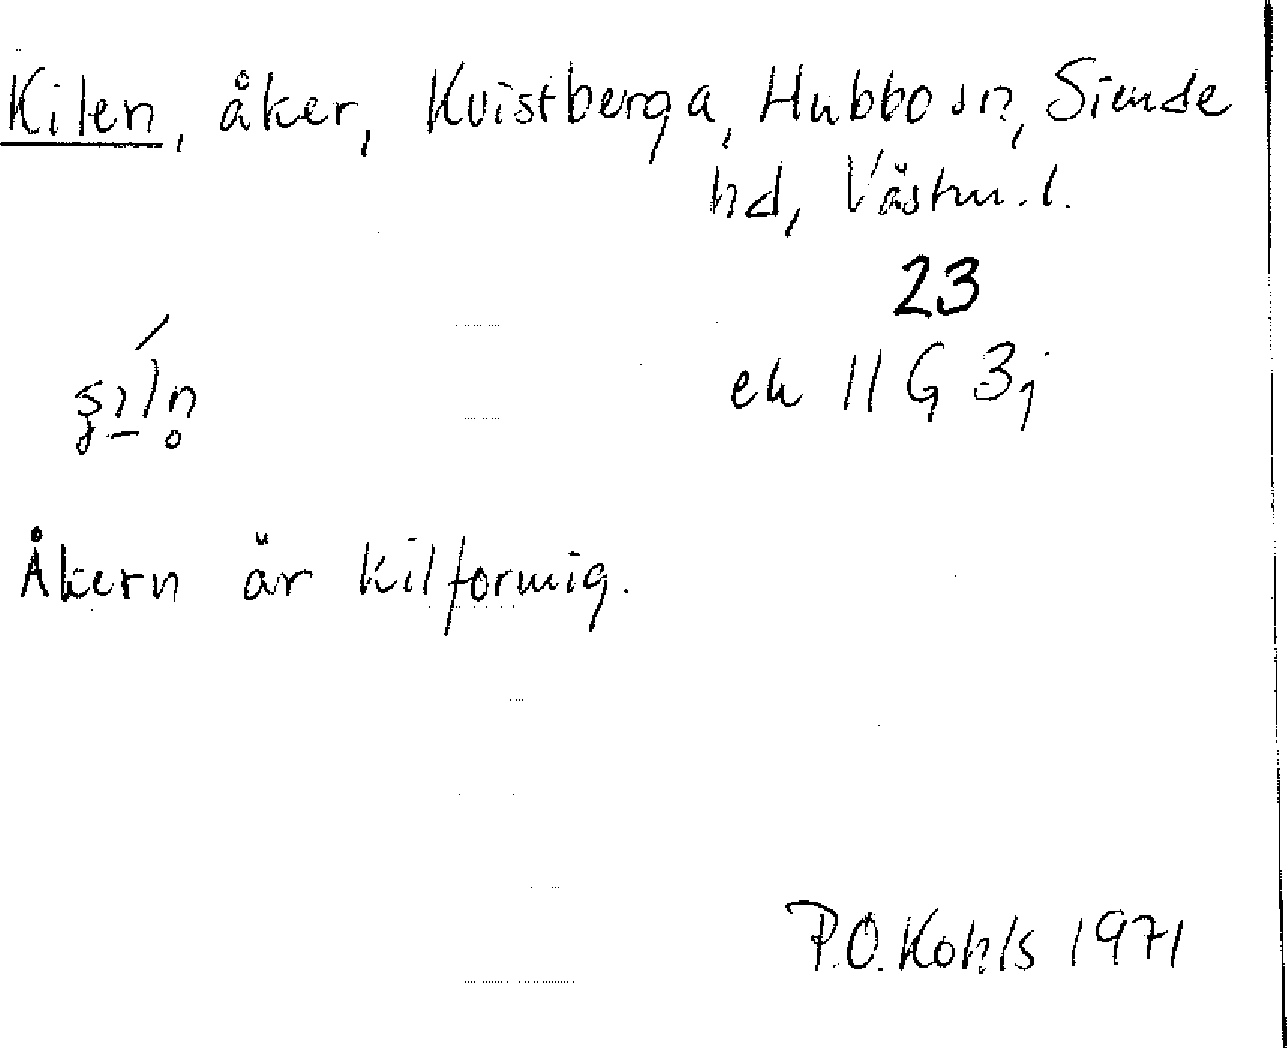 Kilen, åker, Kvistberga, Hubbo sn, Siende
hd, Västm. l.
23
ek 11 G 3j
Åkern är kilformig.
P.O. Kohls 1971